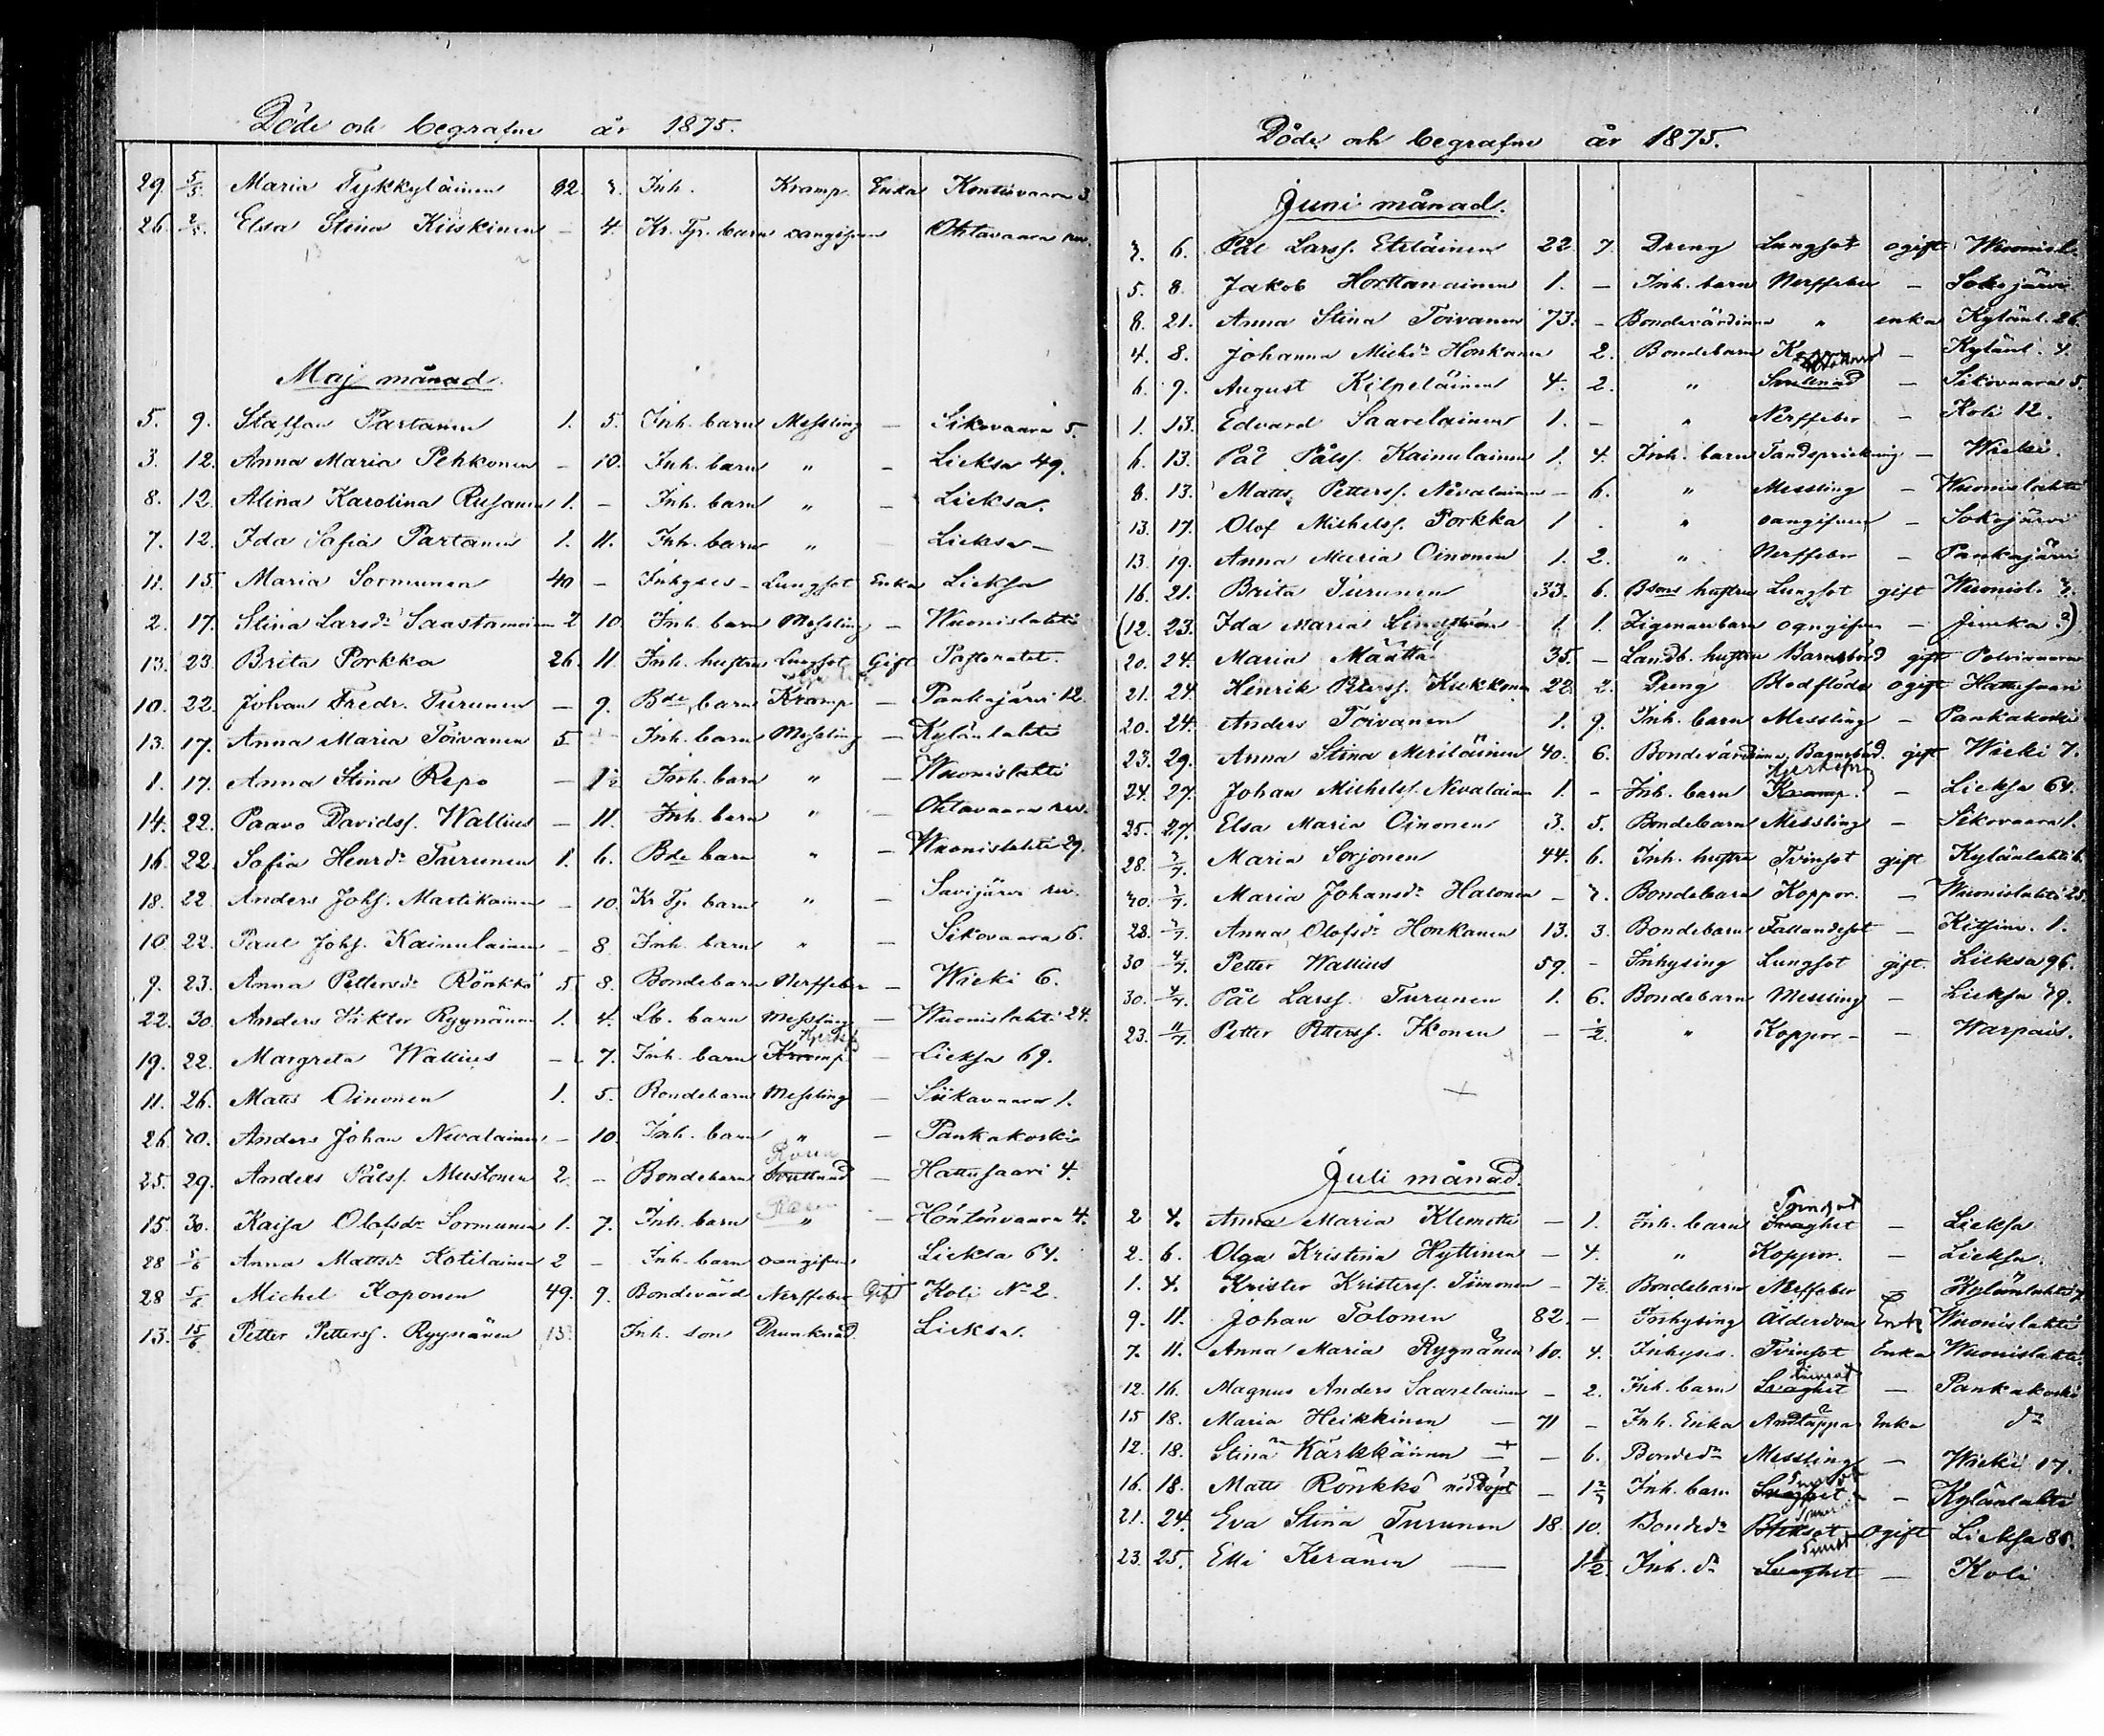 Döde och begrafne år 1875.
29 5/5 Maria Tykkyläinen 82. 3. Inh. Kramp Enka Kontiovaara 3.
26. 2/5. Elsa Stina Kiiskinen – 4. Kr. Tp. barn oangifven Ohtavaara nw.
Maj månad.
5. 9. Staffan Partanen 1. 5. Inh. barn Messling – Sikovaara 5.
3. 12. Anna Maria Pehkonen – 10. Inh. barn " – Lieksa 49.
8. 12. Alina Karolina Rusanen 1. – Inh. barn " – Lieksa.
7. 12. Ida Sofia Partanen 1. 11. Inh. barn " Lieksa –
11. 15. Maria Sormunen 40 – Inhyses – Lungsot Enka Lieksa
2. 17. Stina Larsdr Saastamoinen 2 10. Inh. barn Messling – Wuonislahti
13. 23. Brita Porkka 26. 11. Inh. hustru Lungsot Gift Pastoratet.
10. 22. Johan Fredr. Turunen – 9. Bde barn Kramp – Pankajärvi 12.
13. 17. Anna Maria Toivanen 5. Inh. barn Messling – Kylänlahti
1. 17. Anna Stina Repo – 1½ Inh. barn " – Wuonislahti
14. 22. Paavo Davidss. Wallius – 11. Inh. barn " – Ohtavaara nw.
16. 22. Sofia Henrdr Turunen 1. 6. Bde barn " – Wuonislahti 29.
18. 22. Anders Johs. Martikainen – 10. Kr Tp barn " – Savijärvi nw.
10. 22. Paul Johs. Kainulainen – 8 Inh. barn " – Sikovaara 6.
9. 23. Anna Pettersdr Rönkkö 5 8. Bondebarn Nerffeber – Wieki 6.
22. 30. Anders Viktor Ryynänen 1. 4. Lb. barn Messling – Wuonislahti 24.
19. 22. Margreta Wallius – 7. Inh. barn Kramp – Lieksa 69.
11. 26. Matts Oinonen 1. 5. Bondebarn Messling – Siikavaara 1.
26. 30. Anders Johan Nevalainen – 10. Inh. barn " – Pankakoski
25. 29. Anders Pålss. Mustonen 2. – Bondebarn Rosen – Hattusaari 4.
15. 30. Kaisa Olofsdr Sormunen 1. 7. Inh. barn " – Höntönvaara 4.
28 5/6 Anna Mattsdr Kotilainen 2 – Inh. barn oangifven Lieksa 64.
28 5/6 Michel Koponen 49. 9. Bondevärd Nerffeber Gift Koli No 2.
13. 15/6 Petter Petterss. Ryynänen 13. Inh. son Drunknad. Lieksa.
Döde och begrafne år 1875.
Juni månad.
3. 6. Pål Larss. Eteläinen 22. 7. Dreng Lungsot ogift Wuonisl.
5. 8. Jakob Horttanainen 1. – Inh. barn Nerffeber – Sokojärvi
8. 21. Anna Stina Toivanen 73. – Bondevärdinna " enka Kylänl. 26.
4. 8. Johanna Michsdr Honkanen 2. Bondebarn – Kylänl. 4.
6. 9. August Kilpeläinen 4. 2. " – Sikovaara 5.
1. 13. Edvard Saarelainen 1. – " Nerffeber – Koli 12.
6. 13. Pål Pålss. Kainulainen 1. 4. Inh. barn Tandsprickning – Wieki.
8. 13. Matts Petterss. Nevalainen – 6. " Messling – Wuonislahti
13. 17. Olof Michelss. Porkka 1 . " oangifven – Sokojärvi
13. 19. Anna Maria Oinonen 1. 2. " Nerffeber – Pankajärvi
16. 21. Brita Turunen 33. 6. Bsons hustru Lungsot gift Wuonisl. 3.
(12. 23. Ida Maria Lindström 1 1. Zigenarebarn oangifven – Juuka ?)
20. 24. Maria Määttä 35. – Landb. hustru Barnsbörd gift Polvivaara
21. 24. Henrik Peterss. Kukkonen 22. 2. Dreng Blodflöde ogift Hattusaari
20. 24. Anders Toivanen 1. 9. Inh. barn Messling – Pankakoski
23. 29. Anna Stina Meriläinen 40. 6. Bondevärdinna Barnsbörd. gift Wieki 7.
24. 27. Johan Michelss. Nevalainen 1. – Inh. barn Kramp. – Lieksa 64.
25. 27. Elsa Maria Oinonen 3. 5. Bondebarn Messling – Sikovaara 1.
28. 3/7. Maria Sorjonen 44. 6. Inh. hustru Tvinsot gift Kylänlahti 6.
30. 3/7. Maria Johansdr Halonen – 3. Bondebarn Koppor. – Wuonislahti 25.
28. 3/7. Anna Olofsdr Honkanen 13. 3. Bondebarn Fallandesot – Kitsinv. 1.
30 4/7. Petter Wallius 59. – Inhysing Lungsot gift. Lieksa 96.
30. 4/7. Pål Larss. Turunen 1. 6. Bondebarn Messling – Lieksa 79.
23. 11/7. Petter Petterss. Ikonen – ½. " Koppor – – Warpais.
Juli månad.
2 4. Anna Maria Klemetti – 1. Inh. barn Tvinsot Svaghet – Lieksa
2. 6. Olga Kristina Hyttinen – 4. " Koppor. – Lieksa.
1. 4. Krister Kristerss. Timonen – 7½ Bondebarn Nerffeber Kylänlahti 7.
9. 11. Johan Tolonen 82. – Inhysing Ålderdom Enkl. Wuonislahti
7. 11. Anna Maria Ryynänen 60. 4. Inhyses. Tvinsot Enka Wuonislahti.
12. 16. Magnus Anders Saarelainen – 2. Inh. barn Svaghet Tvinsot – Pankakoski
15 18. Maria Heikkinen – 71 – Inh. Enka Andtäppa Enka do
12. 18. Stina Kärkkäinen + – 6. Bondedr Messling – Wieki 17.
16. 18. Matts Rönkkö nöddöpt – Inh. barn Svaghet – Kylänlahti
21. 24. Eva Stina Turunen 18. 10. Bondedr Bleksot Ogift Lieksa 86.
23. 25. Elli Keränen – 1½. Inh. dr Svaghet – Koli